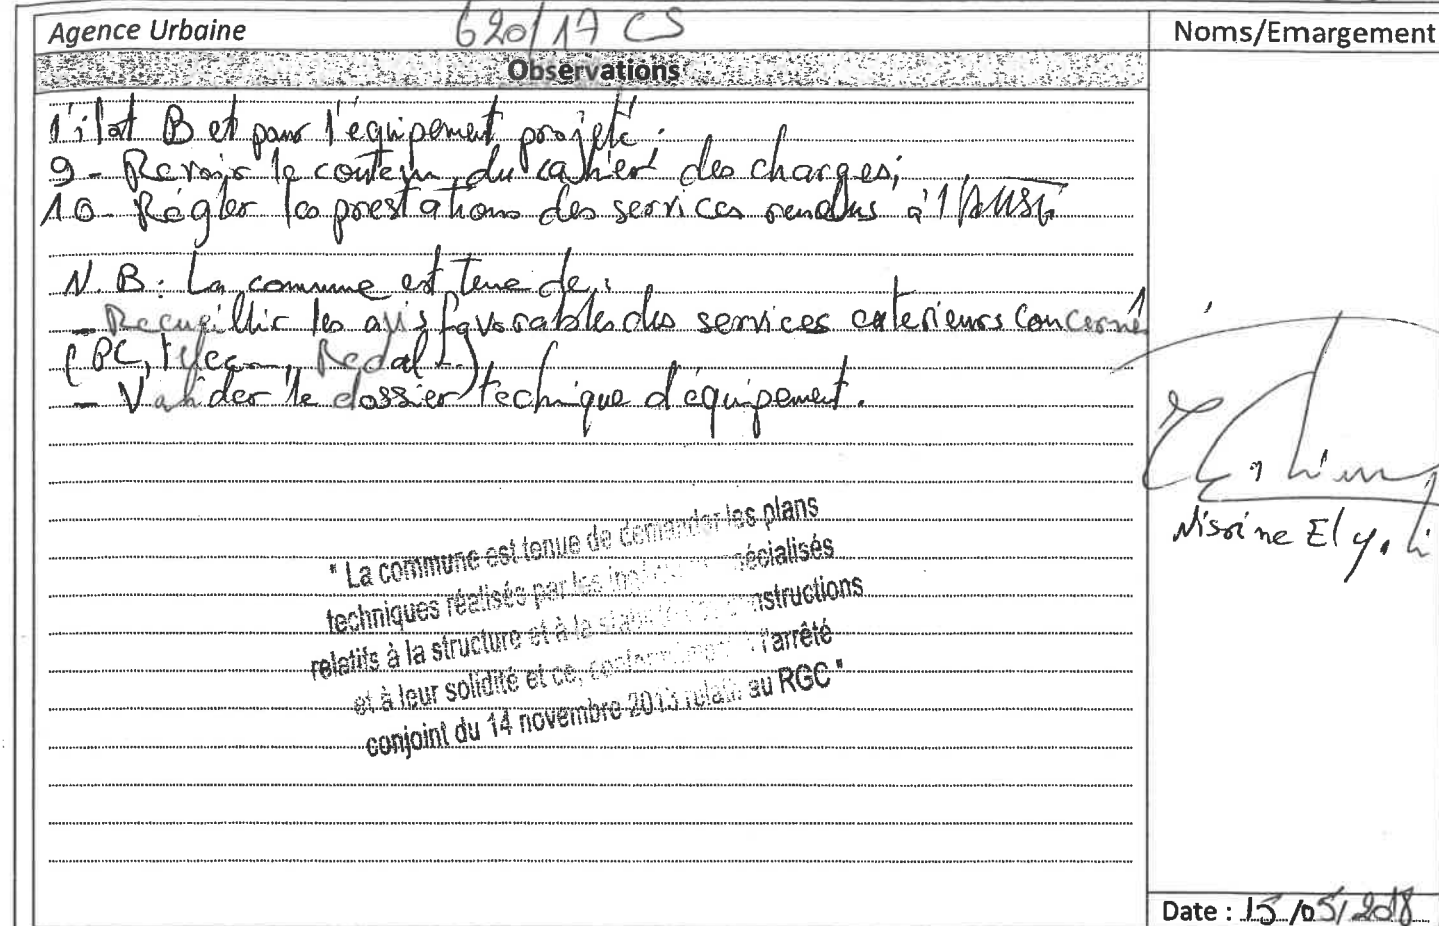 Agence Urbaine 620/17 CS Noms/Emargement
Observations
l'ilot B et pour l'équipement projeté.
9 - Revoir le contenu du cahier des charges;
10 - Régler les prestations des services rendus à l'AUSG
N.B: La commune est tenue de:
- Recueillir les avis favorables des services exterieurs concernés
(PC, telecom, Redal...)
- Valider le dossier technique d'équipement.
" La commune est tenue de demander les plans
techniques réalisés par les spécialisés
relatifs à la structure et à la constructions
et à leur solidité et ce, l'arrêté
conjoint du 14 novembre 2013 relatif au RGC "
Nisrine El
Date : 15/05/2018